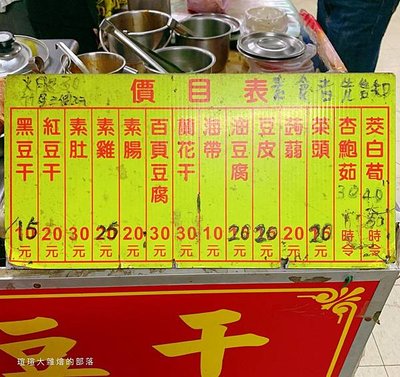 價目表 素食者先告知
茭白筍 30 40 時令
杏鮑茹 時令
菜頭 20元
蒟蒻 20元
豆皮 20元
油豆腐 20元
海帶 10元
蘭花干 30元
百頁豆腐 30元
素腸 20元
素雞 20元
素肚 30元
紅豆干 20元
黑豆干 15元
豆干
瑄瑄大雜燴的部落